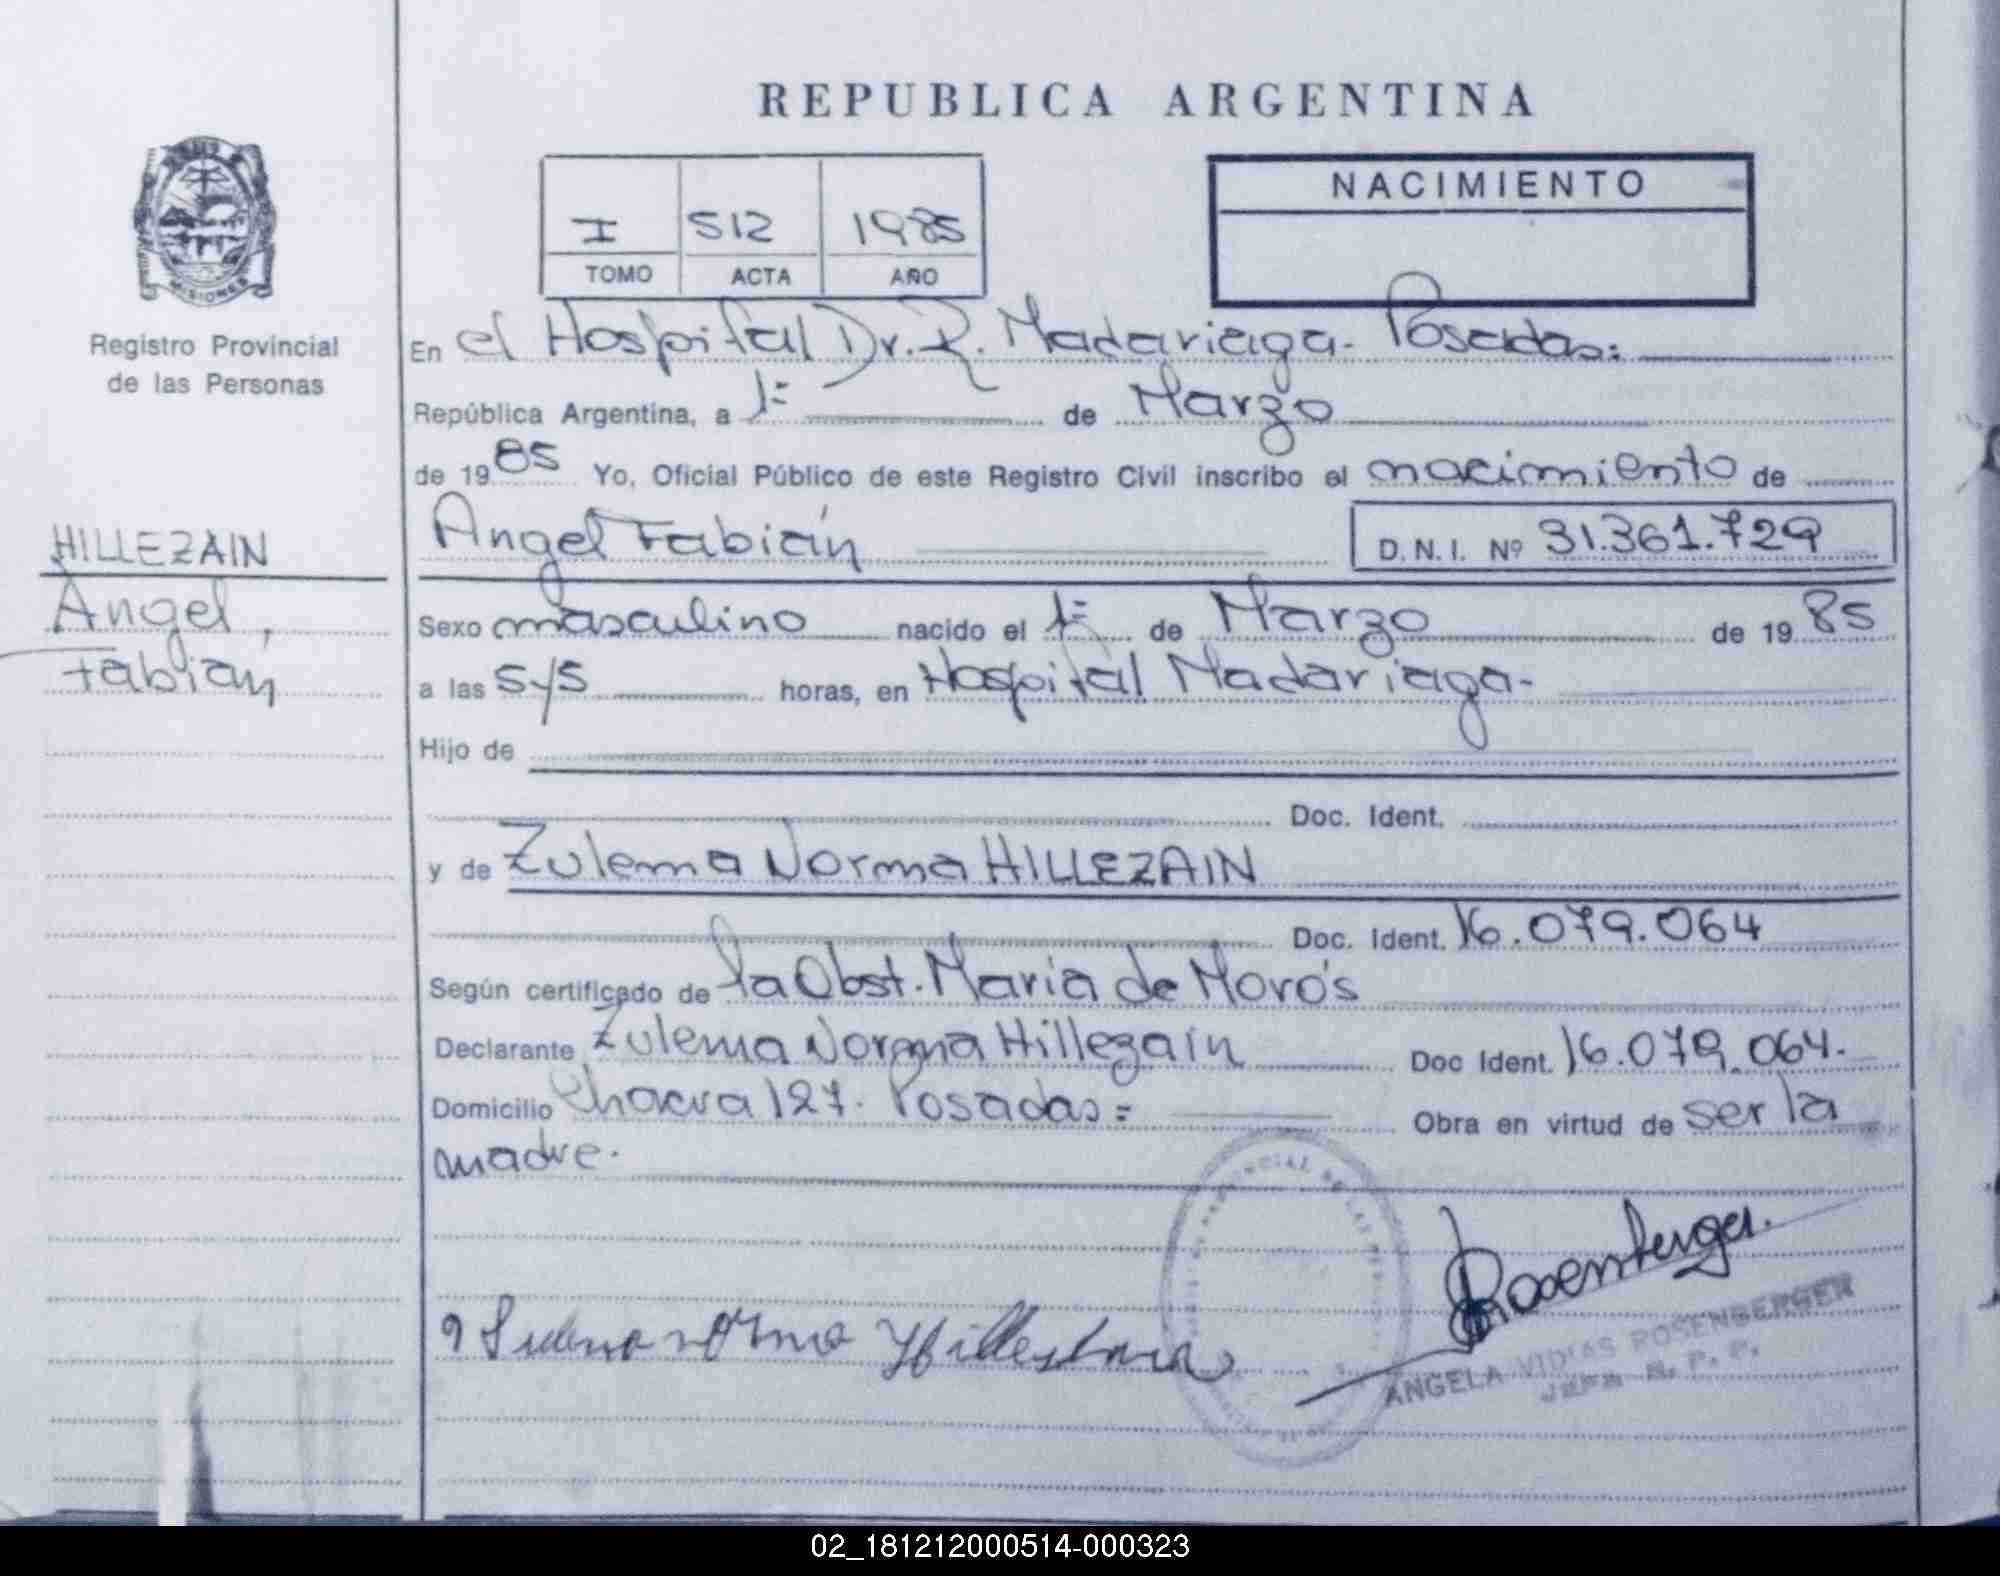 REPUBLICA ARGENTINA
NACIMIENTO
I 512 1985
TOMO ACTA AÑO
MISIONES
Registro Provincial
de las Personas
HILLEZAIN
Angel,
Fabián
En el Hospital Dr. R. Madariaga- Posadas:
República Argentina, a 1º de Marzo
de 1985 Yo, Oficial Público de este Registro Civil inscribo el nacimiento de
Angel Fabián D.N.I. Nº 31.361.729
Sexo masculino nacido el 1º de Marzo de 1985
a las 5y5 horas, en Hospital Madariaga-
Hijo de
Doc. Ident.
y de Zulema Norma HILLEZAIN
Doc. Ident. 16.079.064
Según certificado de la Obst. Maria de Morós
Declarante Zulema Norma Hillezain Doc Ident. 16.079.064.
Domicilio Chacra 127. Posadas= Obra en virtud de ser la
madre.
Rosenberger.
ANGELA VIDIAS ROSENBERGER
JEFA R. P. P.
02_181212000514-000323